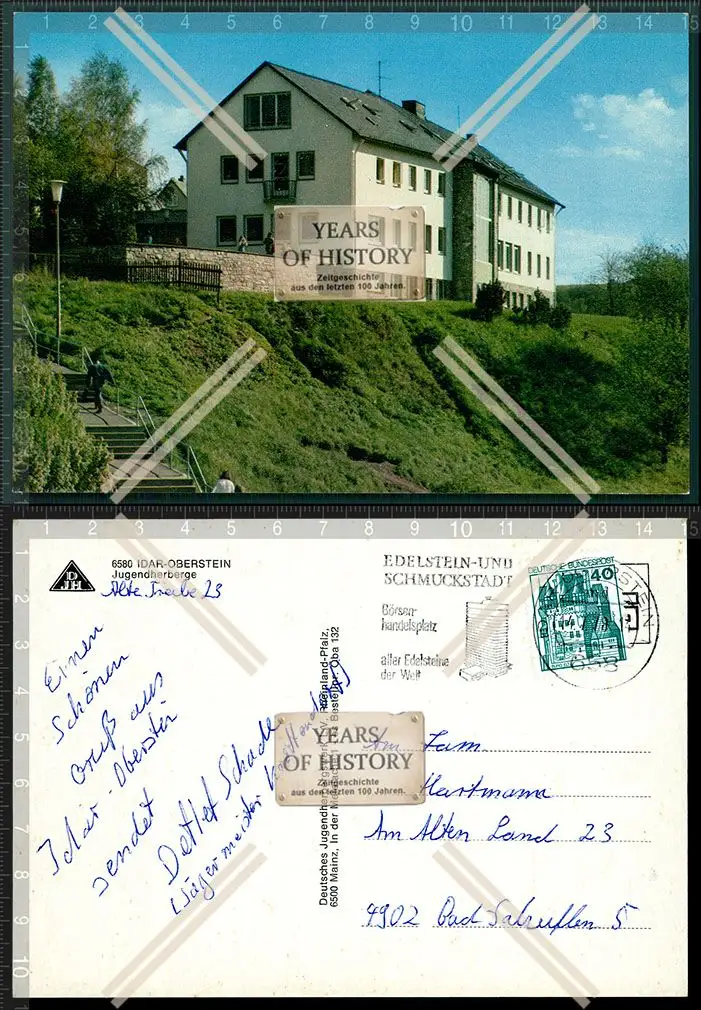 YEARS
OF HISTORY
Zeitgeschichte
aus den letzten 100 Jahren.
DJH
6580 IDAR-OBERSTEIN
Jugendherberge
Alte Treibe 23
EDELSTEIN-UND
SCHMUCKSTADT
Börsen-
handelsplatz
aller Edelsteine
der Welt
DEUTSCHE BUNDESPOST
40
Einen
Schönen
Gruß aus
Idar-Oberstein
sendet
Detlef Schade
Deutsches Jugendherbergswerk
Rheinland-Pfalz,
6500 Mainz, In der
Oba 132
YEARS
OF HISTORY
Zeitgeschichte
aus den letzten 100 Jahren.
Fam
Hartmann
Am Alten Land 23
4902 Bad Salzuflen 5